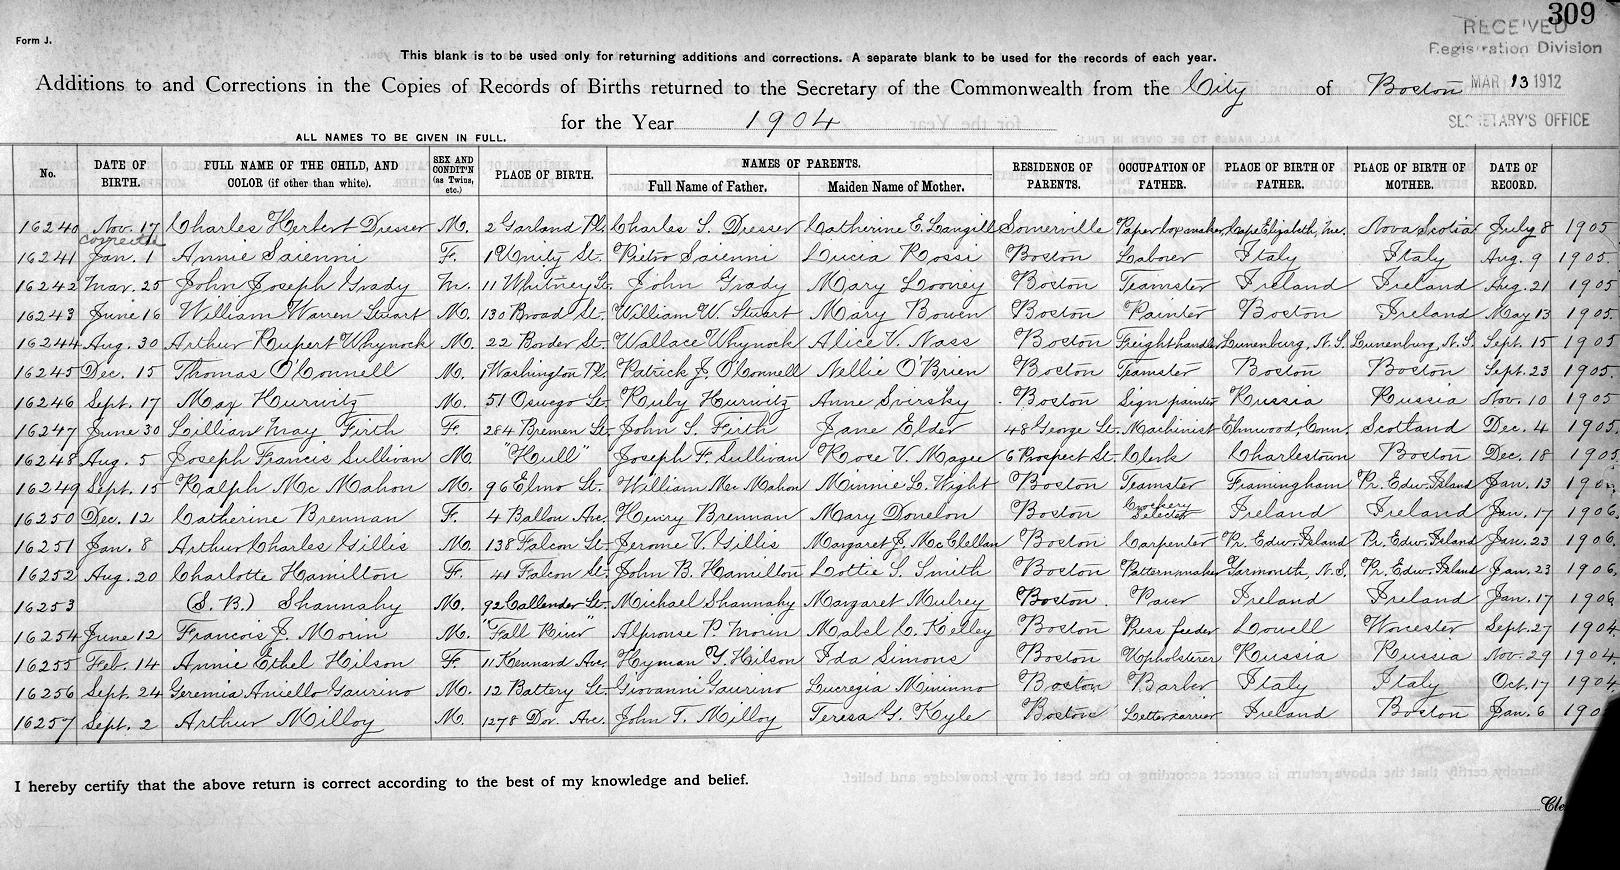 309
RECEIVED
Registration Division
MAR 13 1912
SECRETARY'S OFFICE
Form J.
This blank is to be used only for returning additions and corrections. A separate blank to be used for the records of each year.
Additions to and Corrections in the Copies of Records of Births returned to the Secretary of the Commonwealth from the City of Boston
for the Year 1904
ALL NAMES TO BE GIVEN IN FULL.
No. DATE OF BIRTH. FULL NAME OF THE CHILD, AND COLOR (if other than white). SEX AND CONDIT'N (as Twins, etc.) PLACE OF BIRTH. NAMES OF PARENTS. Full Name of Father. Maiden Name of Mother. RESIDENCE OF PARENTS. OCCUPATION OF FATHER. PLACE OF BIRTH OF FATHER. PLACE OF BIRTH OF MOTHER. DATE OF RECORD.
16240 Nov. 17 Charles Herbert Dresser M. 2 Garland Pl. Charles S. Dresser Catherine E. Langill Somerville Paper box maker Cape Elizabeth, Me. Nova Scotia July 8 1905
corrected
16241 Jan. 1 Annie Saienni F. 1 Unity St. Pietro Saienni Lucia Rossi Boston Laborer Italy Italy Aug. 9 1905.
16242 Mar. 25 John Joseph Grady M. 11 Whitney St. John Grady Mary Looney Boston Teamster Ireland Ireland Aug. 21 1905
16243 June 16 William Warren Stuart M. 130 Broad St. William W. Stuart Mary Bowen Boston Painter Boston Ireland May 13 1905.
16244 Aug. 30 Arthur Rupert Whynock M. 22 Border St. Wallace Whynock Alice V. Nass Boston Freighthandler Lunenburg, N.S. Lunenburg, N.S. Sept. 15 1905
16245 Dec. 15 Thomas O'Connell M. 1 Washington Pl. Patrick J. O'Connell Nellie O'Brien Boston Teamster Boston Boston Sept. 23 1905.
16246 Sept. 17 Max Hurwitz M. 51 Oswego St. Ruby Hurwitz Anne Svirsky Boston Sign painter Russia Russia Nov. 10 1905
16247 June 30 Lillian May Firth F. 284 Bremen St. John S. Firth Jane Elder 48 George St. Machinist Elmwood, Conn. Scotland Dec. 4 1905.
16248 Aug. 5 Joseph Francis Sullivan M. "Hull" Joseph F. Sullivan Rose V. Magee 6 Prospect St. Clerk Charlestown Boston Dec. 18 1905
16249 Sept. 15 Ralph Mc Mahon M. 96 Elmo St. William Mc Mahon Minnie L. Wight Boston Teamster Framingham Pr. Edw. Island Jan. 13
16250 Dec. 12 Catherine Brennan F. 4 Ballou Ave. Henry Brennan Mary Donelon Boston Crockery Selector Ireland Ireland Jan. 17 1906.
16251 Jan. 8 Arthur Charles Gillis M. 138 Falcon St. Jerome V. Gillis Margaret J. McClellan Boston Carpenter Pr. Edw. Island Pr. Edw. Island Jan. 23 1906.
16252 Aug. 20 Charlotte Hamilton F. 41 Falcon St. John B. Hamilton Lottie S. Smith Boston Patternmaker Yarmouth, N.S. Pr. Edw. Island Jan. 23 1906.
16253 (S. B.) Shannahy M. 92 Callender St. Michael Shannahy Margaret Mulrey Boston Paver Ireland Ireland Jan. 17 1906
16254 June 12 Francois J. Morin M. "Fall River" Alphonse P. Morin Mabel C. Kelley Boston Press feeder Lowell Worcester Sept. 27 1904
16255 Feb. 14 Annie Ethel Hilson F. 11 Kennard Ave. Hyman Y. Hilson Ida Simons Boston Upholsterer Russia Russia Nov. 29 1904.
16256 Sept. 24 Geremia Aniello Gaurino M. 12 Battery St. Giovanni Gaurino Lucregia Mininno Boston Barber Italy Italy Oct. 17 1904.
16257 Sept. 2 Arthur Milloy M. 1278 Dor. Ave. John T. Milloy Teresa G. Kyle Boston Lettercarrier Ireland Boston Jan. 6
I hereby certify that the above return is correct according to the best of my knowledge and belief.